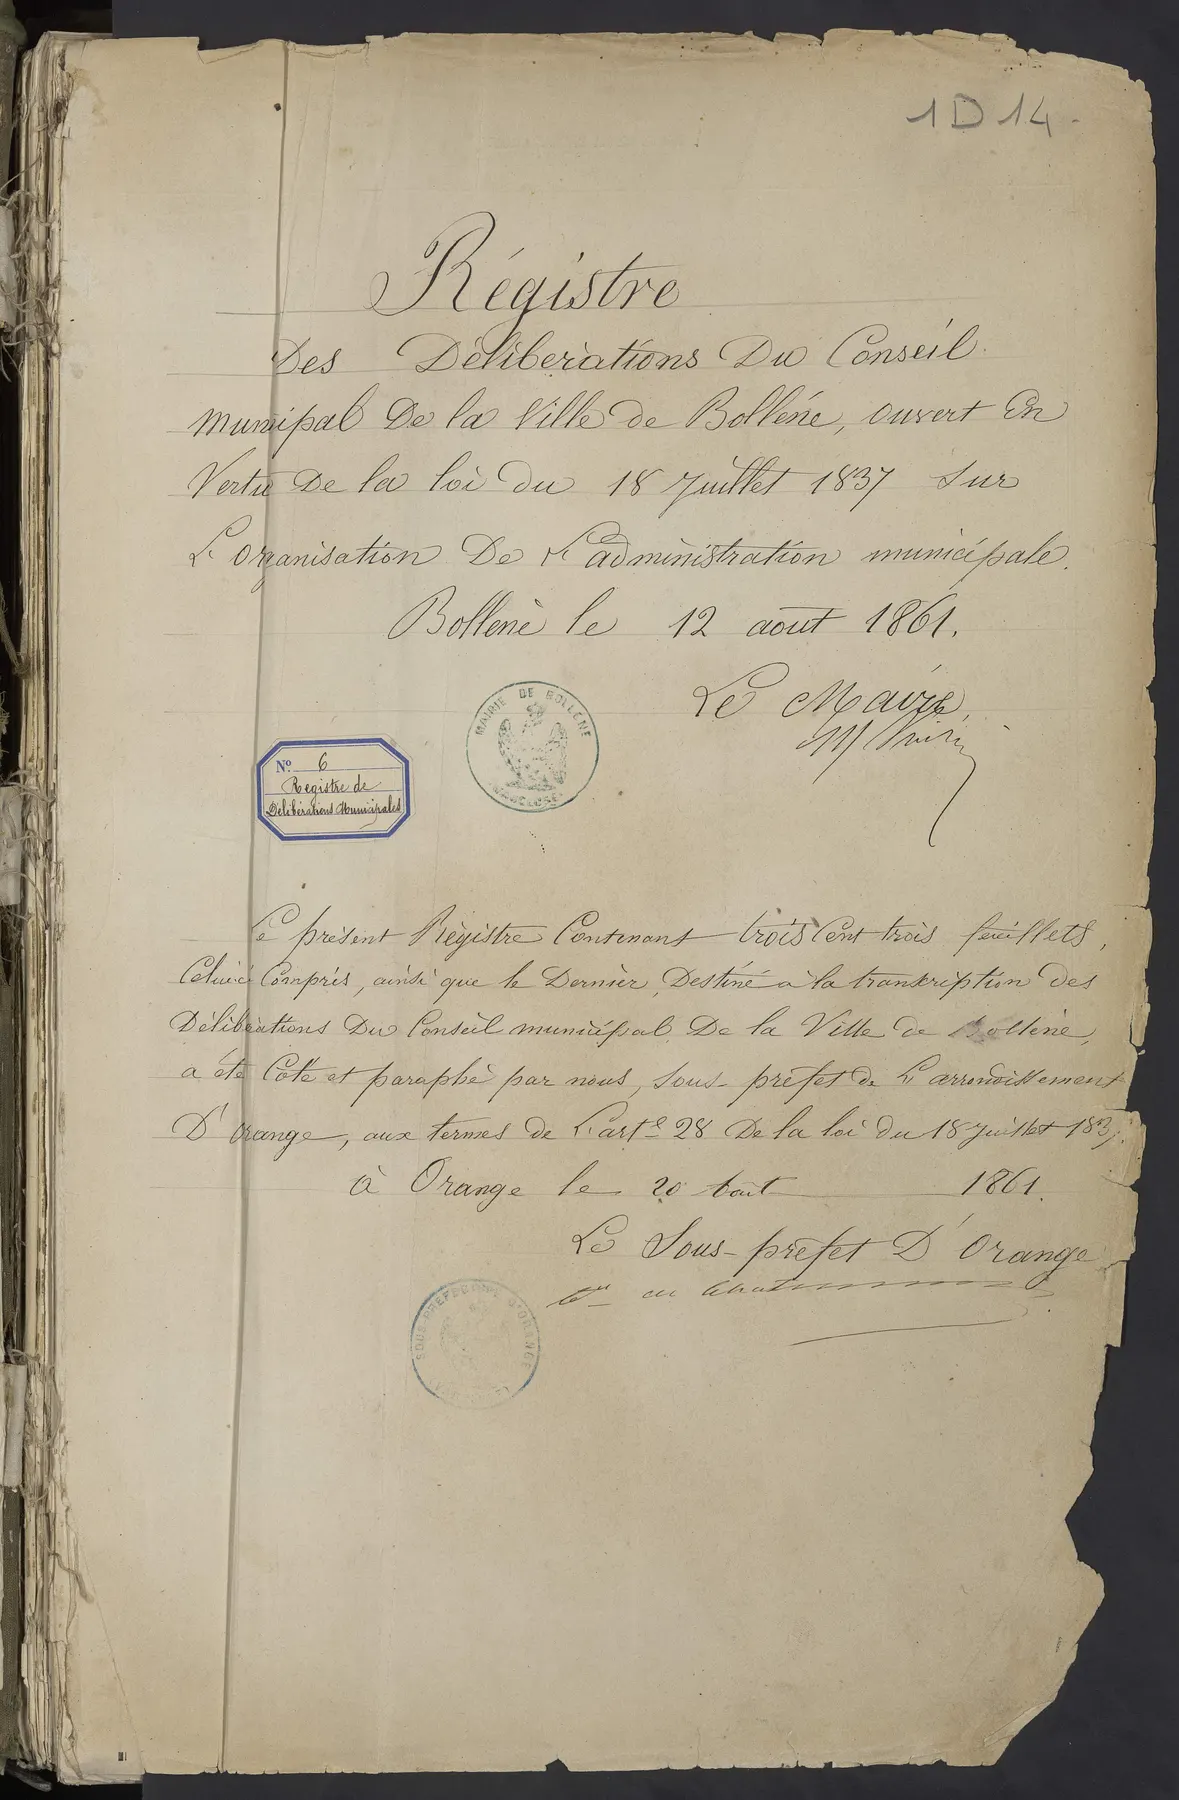 1D14
Régistre
Des Délibérations Du Conseil
Municipal De la Ville de Bollène, ouvert En
Vertu De la loi du 18 Juillet 1837 sur
L'organisation De L'administration municipale.
Bollène le 12 août 1861.
Le Maire,
MAIRIE DE BOLLÈNE
VAUCLUSE
N° 6
Registre de
Délibérations Municipales
Le présent Régistre Contenant trois Cent trois feuillets,
Celui-ci Compris, ainsi que le Dernier, Destiné a la transcription des
Délibérations Du Conseil municipal De la Ville de Bollène,
a été Coté et paraphé par nous, Sous-préfet de L'arrondissement
D'orange, aux termes de L'art.e 28 De la loi du 18 Juillet 1837.
à Orange le 20 Août 1861.
Le Sous-préfet D'Orange
SOUS-PREFECTURE D'ORANGE